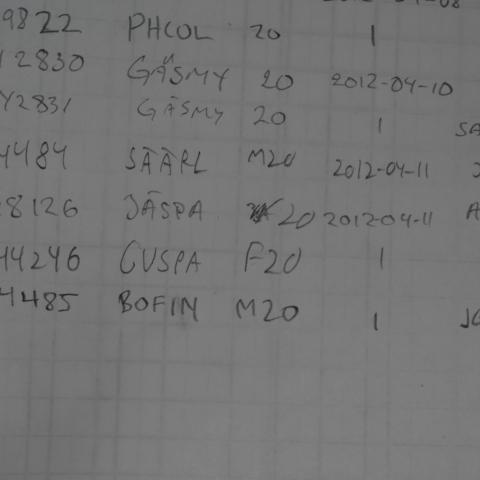 9822 PHCOL 20 1
2830 GÄSMY 20 2012-04-10
Y2831 GÄSMY 20 1 SA
4484 SÄÄRL M20 2012-04-11
8126 JÄSPA 20 2012-04-11 A
44246 GUSPA F20 1
4485 BOFIN M20 1 JO